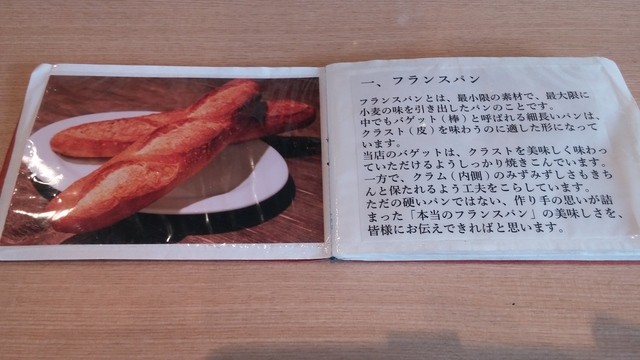 一、フランスパン
フランスパンとは、最小限の素材で、最大限に
小麦の味を引き出したパンのことです。
中でもバゲット(棒)と呼ばれる細長いパンは、
クラスト(皮)を味わうのに適した形になって
います。
当店のバゲットは、クラストを美味しく味わっ
ていただけるようしっかり焼きこんでいます。
一方で、クラム(内側)のみずみずしさもきち
んと保たれるよう工夫をこらしています。
ただの硬いパンではない、作り手の思いが詰
まった「本当のフランスパン」の美味しさを、
皆様にお伝えできればと思います。